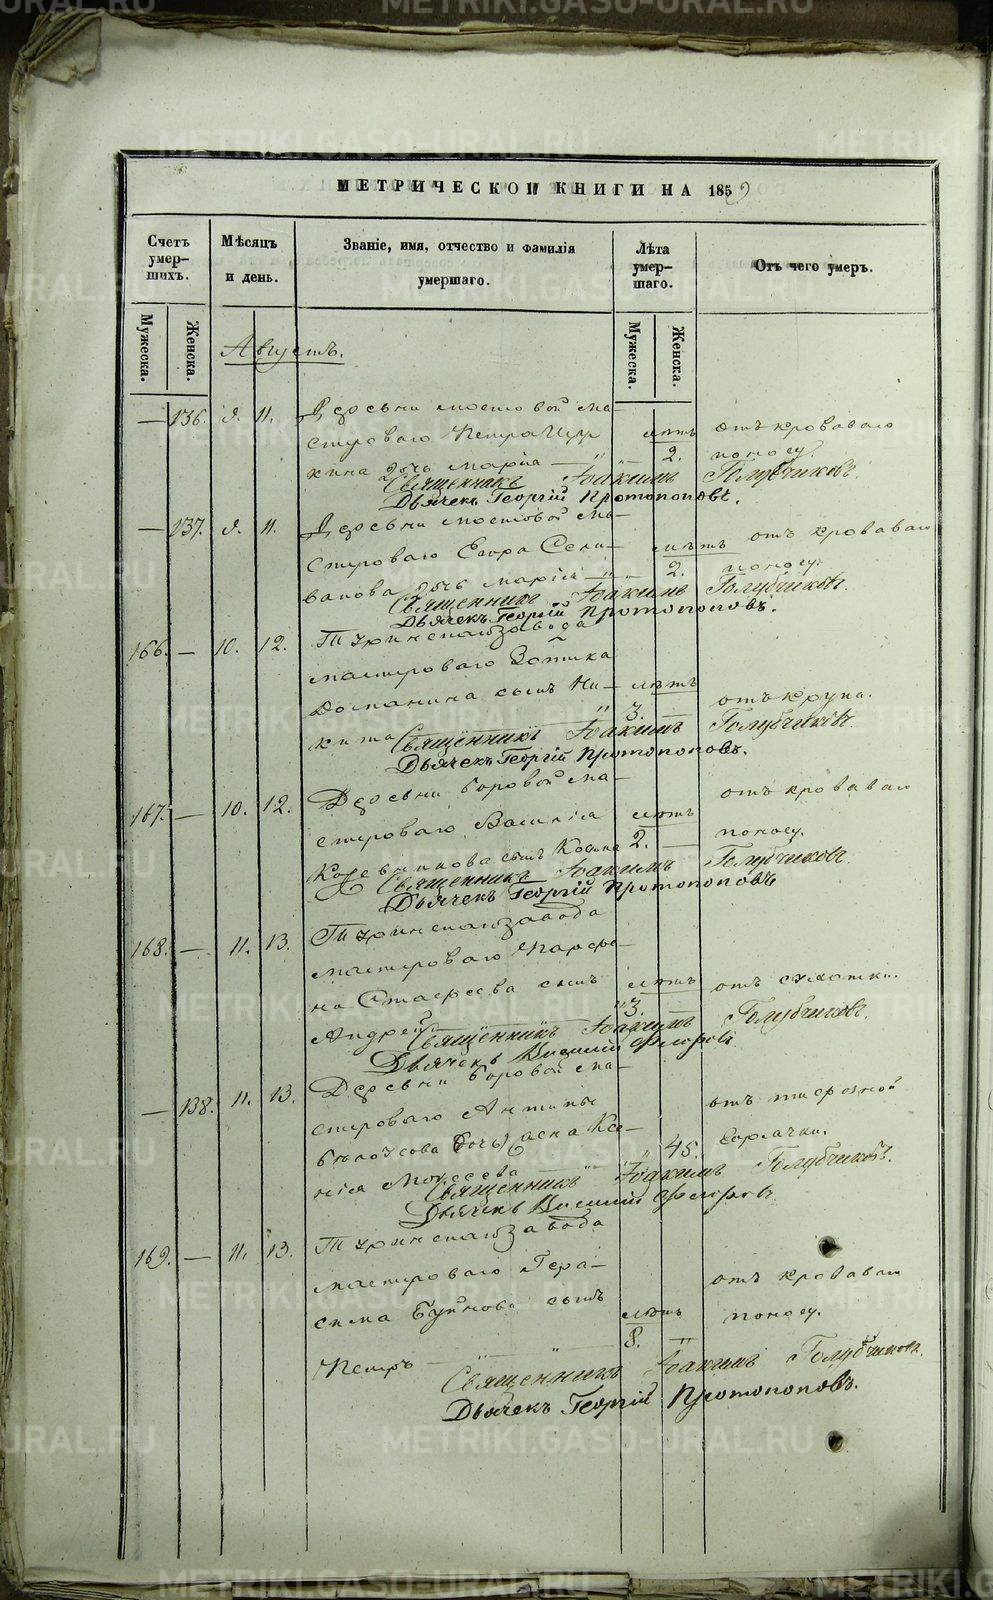 METRIKI.GASO-URAL.RU
МЕТРИЧЕСКОЙ КНИГИ НА 1859
Счетъ умер-шихъ.
Мѣсяцъ и день.
Званіе, имя, отчество и фамилія умершаго.
Лѣта умер-шаго.
Отъ чего умеръ.
Мужеска.
Женска.
Мужеска.
Женска.
Августъ.
— 136. 9. 11. Деревни мостовой ма-
стероваго Петра
лѣтъ отъ кроваваго
кина дочь Марія — " — 2. поносу.
Священникъ Іоакимъ Голубчиковъ
Дьячекъ Георгій Протопоповъ.
— 137. 9. 11. Деревни мостовой ма-
стероваго Егора Сели- лѣтъ отъ кроваваго
ванова дочь Марія " 2. поносу.
Священникъ Іоакимъ Голубчиковъ.
Дьячекъ Георгій Протопоповъ.
166. — 10. 12. Туринскаго завода
мастероваго
сынъ Ни- лѣтъ
кита " 3. отъ крупа.
Священникъ Іоакимъ Голубчиковъ
Дьячекъ Георгій Протопоповъ.
167. — 10. 12. Деревни боровой ма-
стероваго Василія лѣтъ отъ кроваваго
Кожевникова сынъ Косма 2. — поносу.
Священникъ Іоакимъ Голубчиковъ.
Дьячекъ Георгій Протопоповъ
168. — 11. 13. Туринскаго завода
мастероваго Парфе-
на сынъ лѣтъ отъ
Андрей " 3.
Священникъ Іоакимъ Голубчиковъ.
Дьячекъ Флоровъ
— 138. 11. 13. Деревни боровой ма-
стероваго Антипы отъ тифозной
Бѣлоусова Ксе- " 45. горячки.
нія Моисеева
Священникъ Іоакимъ Голубчиковъ.
Дьячекъ Флоровъ
169. — 11. 13. Туринскаго завода
мастероваго Гера- отъ кроваваго
сима сынъ лѣтъ поносу.
8. "
Петръ —
Священникъ Іоакимъ Голубчиковъ.
Дьячекъ Георгій Протопоповъ.